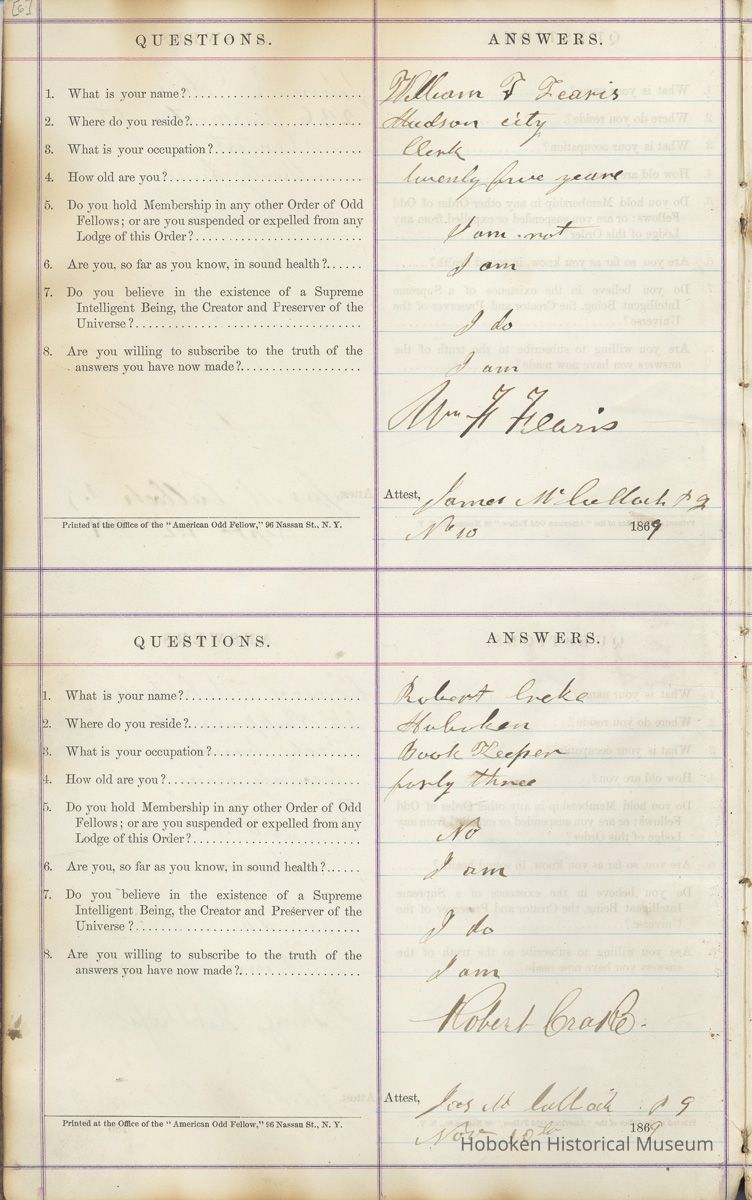 [6]
QUESTIONS. ANSWERS.
1. What is your name?........................... William F Fearis
2. Where do you reside?........................... Hudson city
3. What is your occupation?........................... Clerk
4. How old are you?........................... twenty five years
5. Do you hold Membership in any other Order of Odd
Fellows; or are you suspended or expelled from any
Lodge of this Order?........................... I am not
6. Are you, so far as you know, in sound health?...... I am
7. Do you believe in the existence of a Supreme
Intelligent Being, the Creator and Preserver of the
Universe?........................... I do
8. Are you willing to subscribe to the truth of the
answers you have now made?........................... I am
Wm F Fearis
Attest, James McCulloch P G
Printed at the Office of the "American Odd Fellow," 96 Nassau St., N. Y. 10 1869
QUESTIONS. ANSWERS.
1. What is your name?........................... Robert
2. Where do you reside?........................... Hoboken
3. What is your occupation?........................... Book Keeper
4. How old are you?........................... forty three
5. Do you hold Membership in any other Order of Odd
Fellows; or are you suspended or expelled from any
Lodge of this Order?........................... No
6. Are you, so far as you know, in sound health?...... I am
7. Do you believe in the existence of a Supreme
Intelligent Being, the Creator and Preserver of the
Universe?........................... I do
8. Are you willing to subscribe to the truth of the
answers you have now made?........................... I am
Robert
Attest, Jas McCulloch P G
Printed at the Office of the "American Odd Fellow," 96 Nassau St., N. Y. Nov 10th 1869
Hoboken Historical Museum